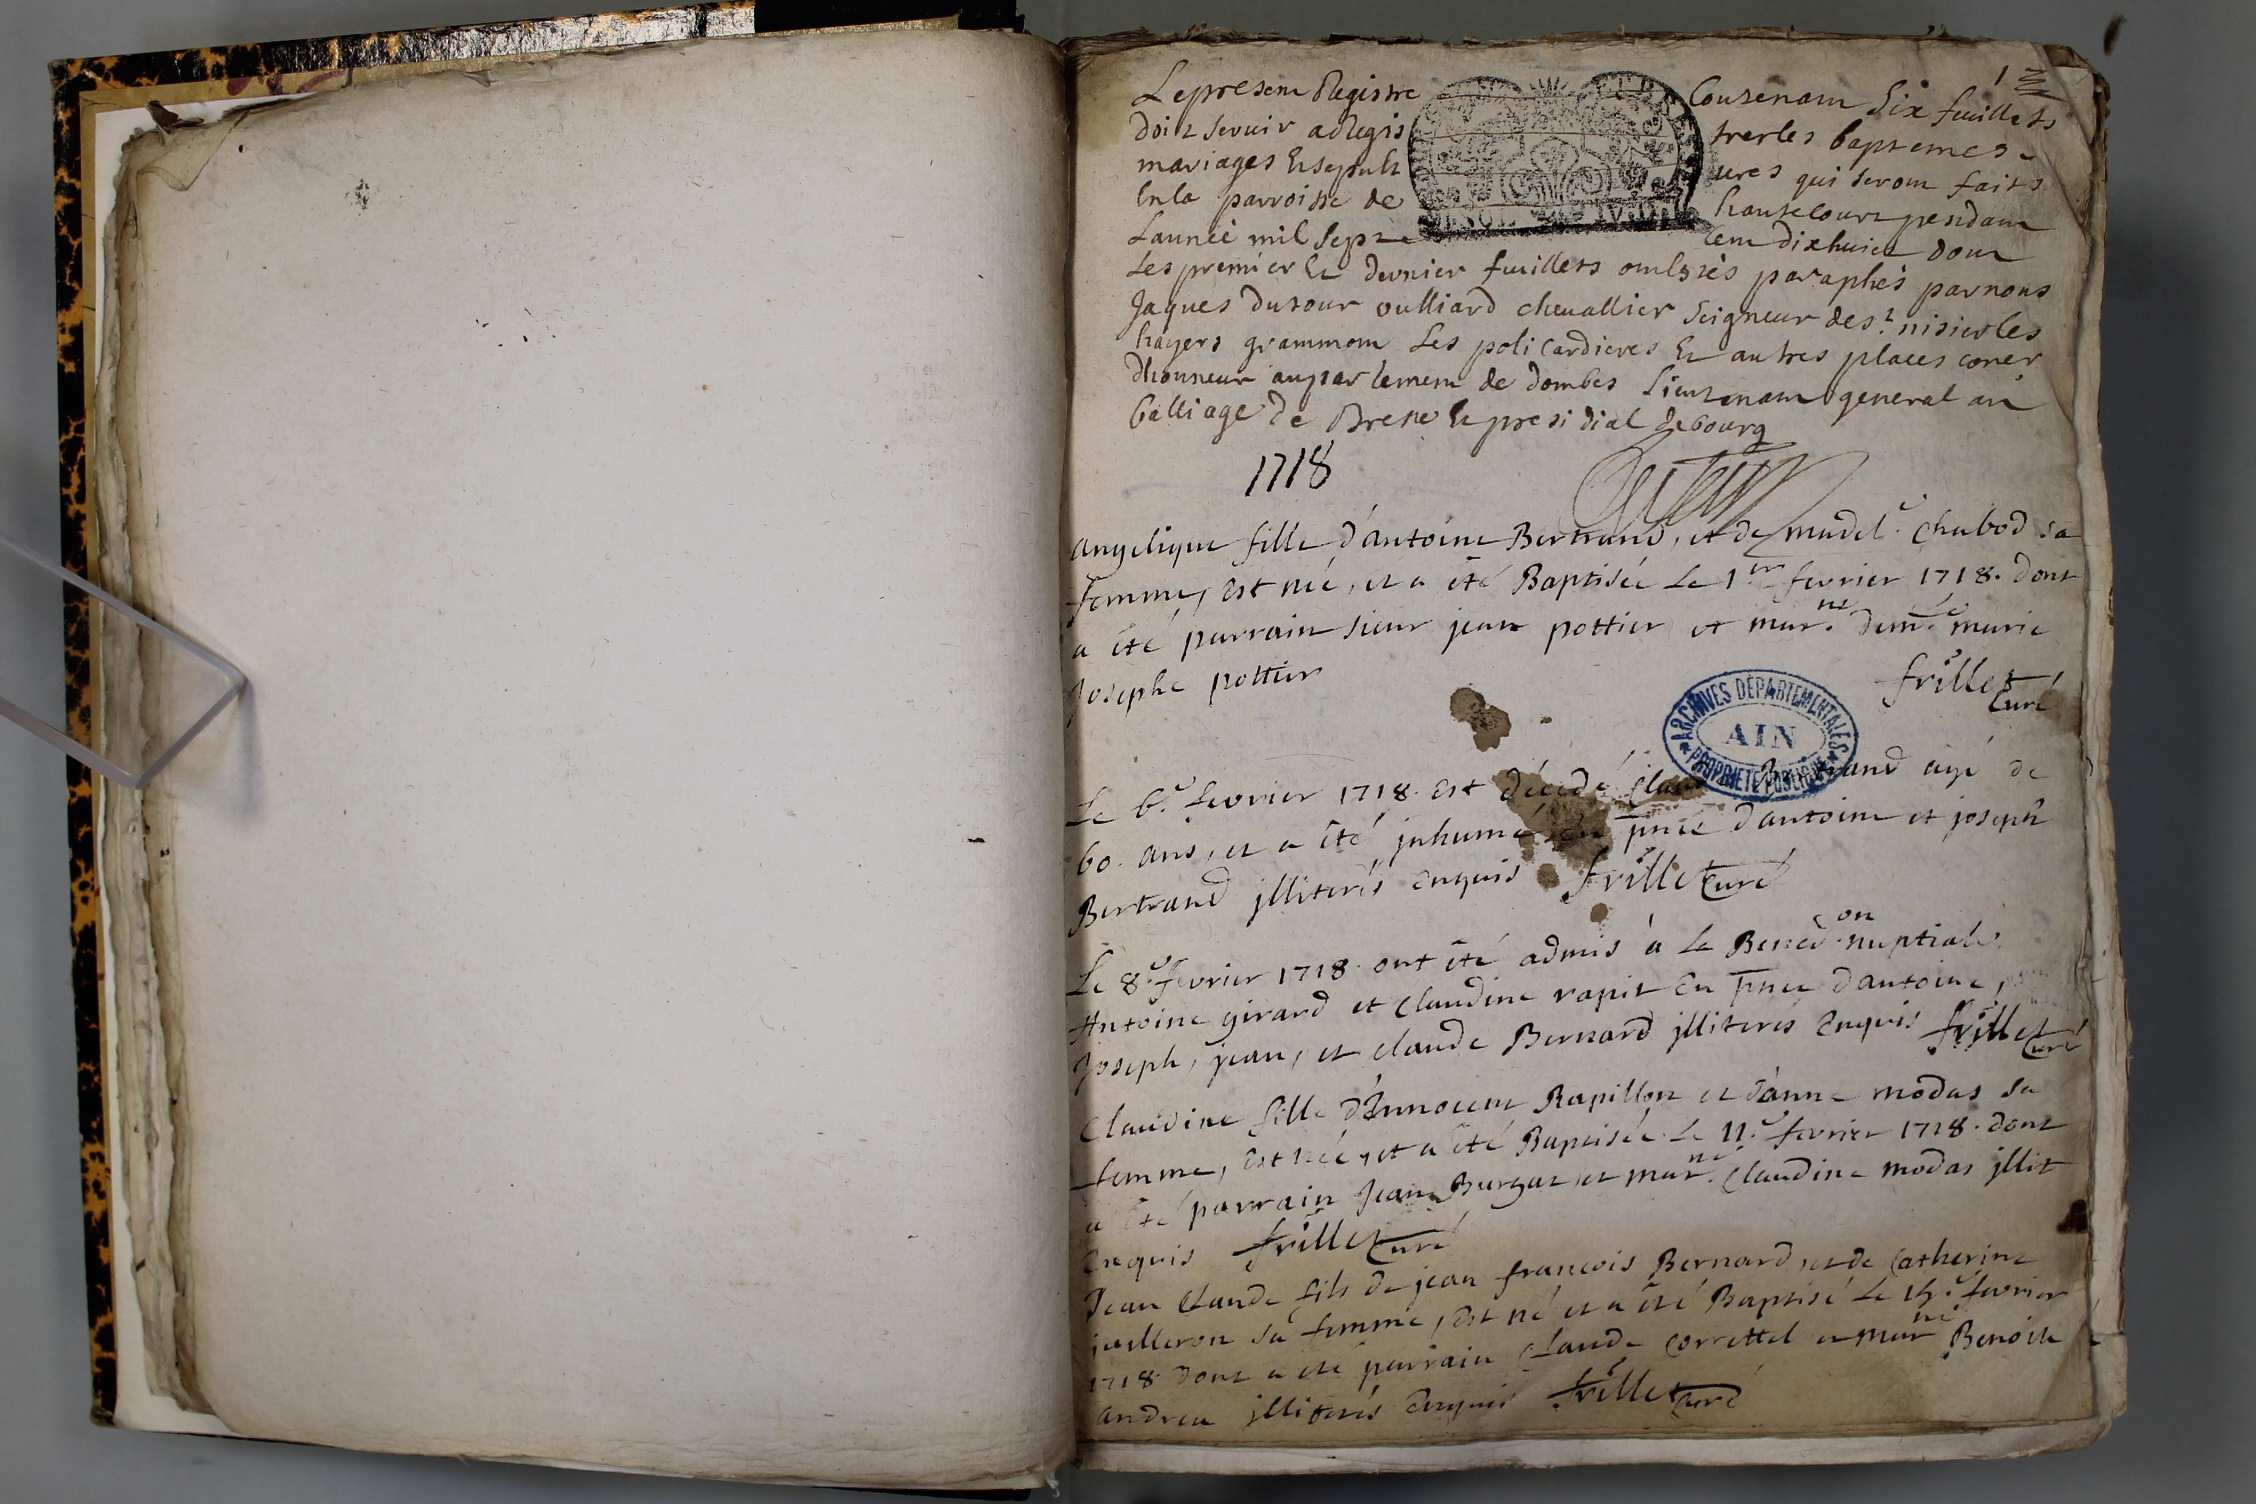 1
Le presen Registre Contenam Six feuillets
doit servir a Regis trer les baptemes
mariages Et sepult ures qui serom faits
En la parroisse de hautecourt pendam
Lannéé mil sept cem dixhuict dom
Les premier Et dernier feuillets om estés paraphés par nous
Jaques dutour vulliard chevallier Seigneur de st nisier les
grammom Les policardieres Et autres places coner
dhonneur au parlemem de dombes Lieutenam general au
balliage de Bresse Et presidial de bourg
1718
angelique fille d'antoine Bertrand, et de madel.e Chabod sa
femme, est née, et a été Baptisée Le 1er fevrier 1718. dont
a été parrain sieur jean pottier et mar.ne dem.lle marie
Josephe pottier frillet
curé
ARCHIVES DÉPARTEMENTALES
AIN
PROPRIÉTÉ PUBLIQUE
Le 6.e fevrier 1718. est décedé Claude Bertrand agé de
60. ans, et a été jnhumé en pnce d'antoine et joseph
Bertrand jlliterés enquis frillet curé
Le 8.e fevrier 1718. ont été admis à la Bened.on nuptiale
Antoine girard et Claudine rapit En pnce d'antoine,
Joseph, jean, et claude Bernard jlliterés Enquis frillet curé
Claudine fille d'Innocent Rapillon et d'anne modas sa
femme, est née, et a été Baptisée Le 11.e fevrier 1718. dont
a été parrain Jean Burgat et mar.ne Claudine modas jllit
Enquis frillet curé
Jean Claude fils de jean françois Bernard, et de Catherine
juilleron sa femme, est né et a été Baptisé Le 15.e fevrier
1718 dont a été parrain Claude Correttel et mar.ne Benoite
andrea jlliterés Enquis frillet curé